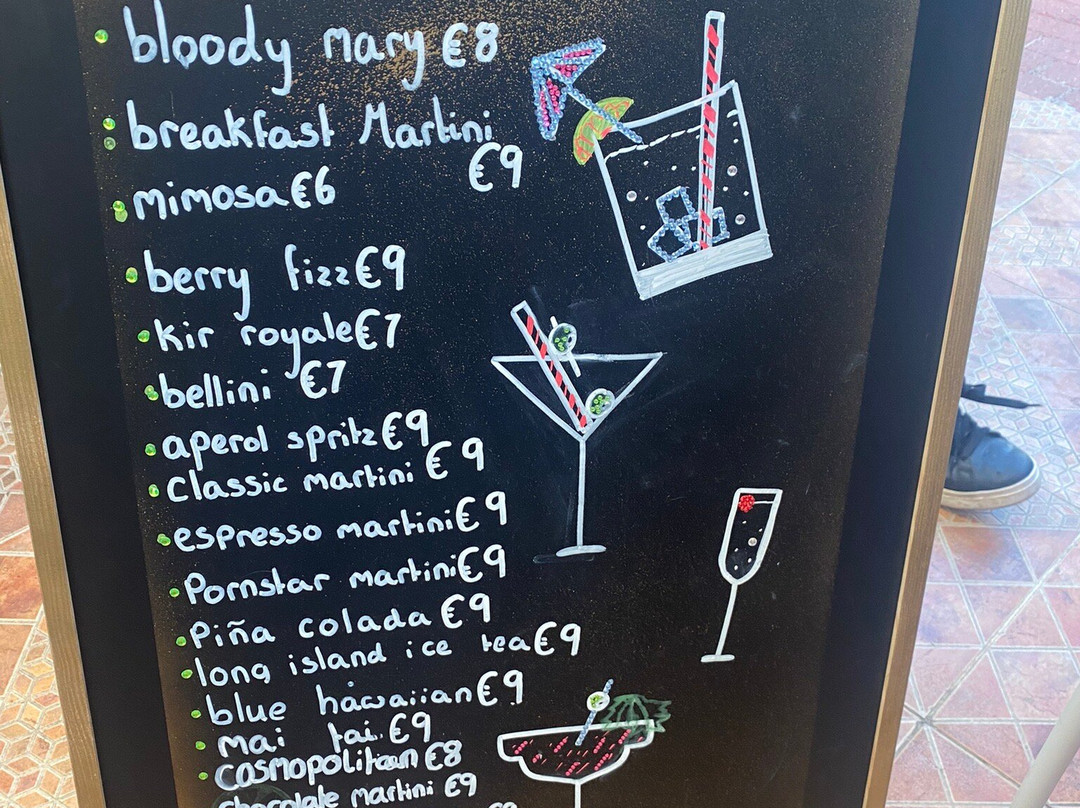 bloody Mary €8
breakfast Martini
€9
mimosa €6
berry fizz €9
kir royale €7
bellini €7
aperol spritz €9
classic martini €9
espresso martini €9
Pornstar martini €9
Piña colada €9
long island ice tea €9
blue hawaiian €9
mai tai €9
cosmopolitan €8
chocolate martini €9